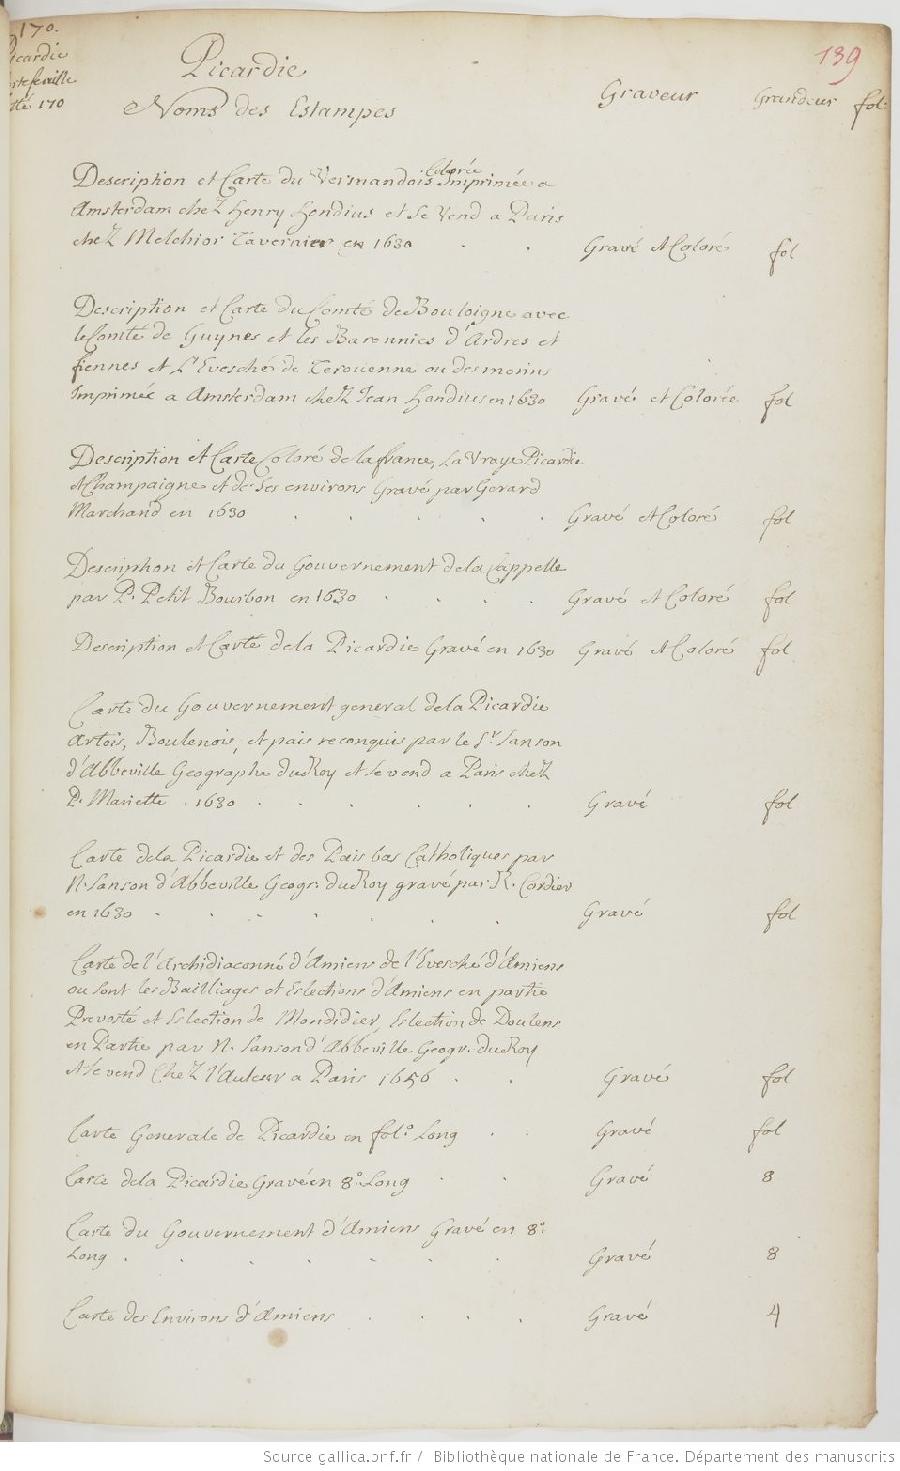 170.
Picardie
Portefeuille
Cotté 170
139
Picardie
Noms des Estampes
Graveur Grandeur fol.
Description et Carte du Vermandois Colorée Imprimée a
Amsterdam chez henry hondius et se Vend a Paris
chez Melchior Tavernier en 1630 . . Gravé et Coloré fol
Description et Carte du Comté de Bouloigne avec
le Comté de Guynes et les Baronnies d'Ardres et
fiennes et L'Evesché de Terouenne ou des morins
Imprimée a Amsterdam chez Jean hondius en 1630 Gravé et Colorée fol
Description et Carte Coloré de la france, La Vraye Picardie
et Champaigne et de ses environs Gravé par Gerard
Marchand en 1630 . . . . . Gravé et Coloré fol
Description et Carte du Gouvernement de la Cappelle
par P. Petit Bourbon en 1630 . . . . Gravé et Coloré fol
Description et Carte de la Picardie Gravé en 1630 Gravé et Coloré fol
Carte du Gouvernement general de la Picardie
Artois, Boulenois, et pais reconquis par le Sr. Sanson
d'Abbeville Geographe du Roy et se vend a Paris chez
P. Mariette . 1630 . . . . . . Gravé fol
Carte de la Picardie et des Pais bas Catholiques par
N. Sanson d'Abbeville Geogr. du Roy gravé par R. Cordier
en 1630 . . . . . . . Gravé fol
Carte de l'Archidiaconné d'Amiens de l'Evesché d'Amiens
ou sont les Bailliages et Eslections d'Amiens en partie
Prevosté et Eslection de Mondidier, Eslection de Doulens
en Partie par N. Sanson d'Abbeville Geogr. du Roy
et se vend Chez l'Auteur a Paris 1656 . . Gravé fol
Carte Generale de Picardie en fol° Long . . Gravé fol
Carte de la Picardie Gravé en 8° Long . . Gravé 8
Carte du Gouvernement d'Amiens Gravé en 8°
Long . . . . . . . Gravé 8
Carte des Environs d'Amiens . . . . Gravé 4
Source gallica.bnf.fr / Bibliothèque nationale de France. Département des manuscrits